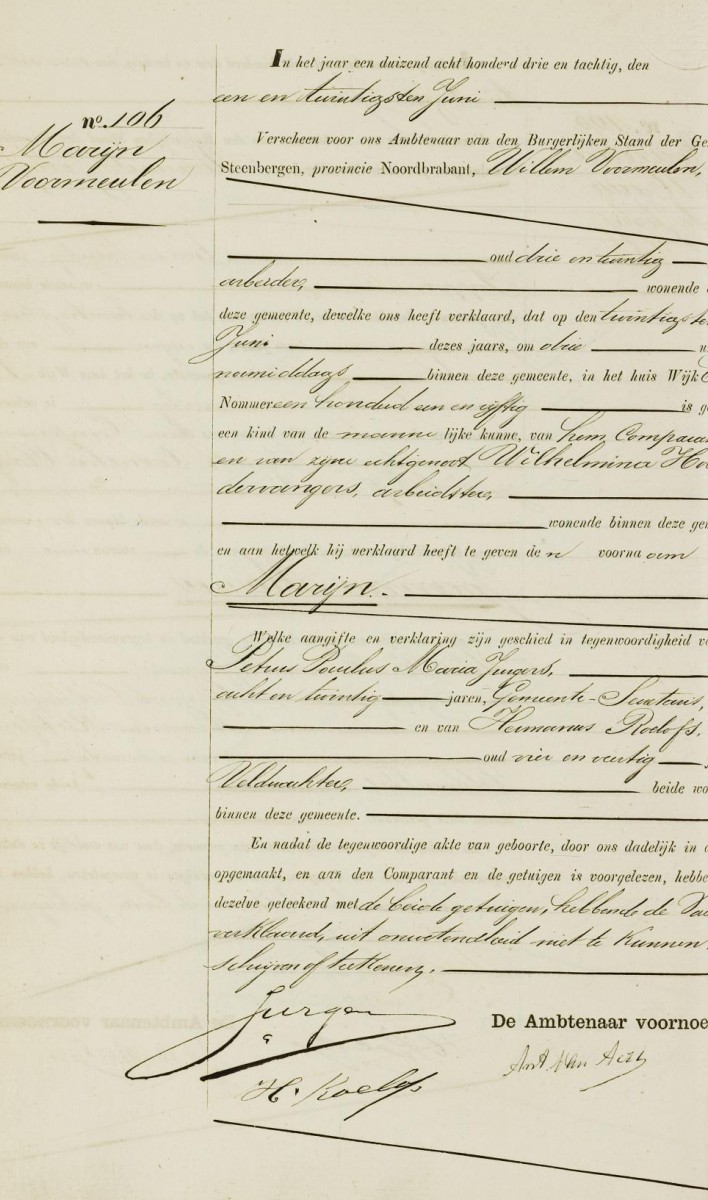 nº. 106
Marijn
Voormeulen
In het jaar een duizend acht honderd drie en tachtig, den
een en twintigsten Juni
Verscheen voor ons Ambtenaar van den Burgerlijken Stand der Ge
Steenbergen, provincie Noordbrabant, Willem Voormeulen,
oud drie en twintig
arbeider, wonende
deze gemeente, dewelke ons heeft verklaard, dat op den twintigste
Juni dezes jaars, om drie u
namiddags binnen deze gemeente, in het huis Wijk
Nommer een honderd een en vijftig is ge
een kind van de mannelijke kunne, van hem Comparan
en van zijne echtgenoot Wilhelmina Hoe
dervangers, arbeidster,
wonende binnen deze gem
en aan hetwelk hij verklaard heeft te geven den voornaam
Marijn.
Welke aangifte en verklaring zijn geschied in tegenwoordigheid v
Petrus Paulus Maria Jurgers,
acht en twintig jaren, Gemeente-Secretaris,
en van Hermanus Roelofs,
oud vier en veertig
Veldwachter, beide wo
binnen deze gemeente.
En nadat de tegenwoordige akte van geboorte, door ons dadelijk in
opgemaakt, en aan den Comparant en de getuigen is voorgelezen, hebbe
dezelve geteekend met de beide getuigen, hebbende de Va
verklaard, uit onwetendheid niet te kunnen
schrijven of teekenen.
De Ambtenaar voornoe
H. Roelofs